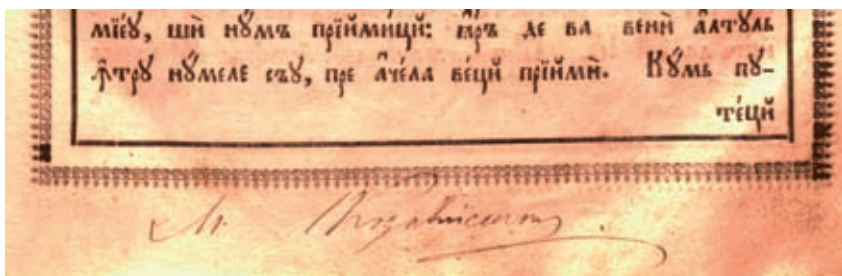 мїе́ꙋ, шѝ нꙋ́мъ прїими́цй: і҆а́ръ де ва венѝ а҆́лтꙋль
ꙟ҆трꙋ нꙋ́меле съꙋ, пре а҆че́ла ве́цй прїимѝ. Кꙋ́мь пꙋ-
те́цй